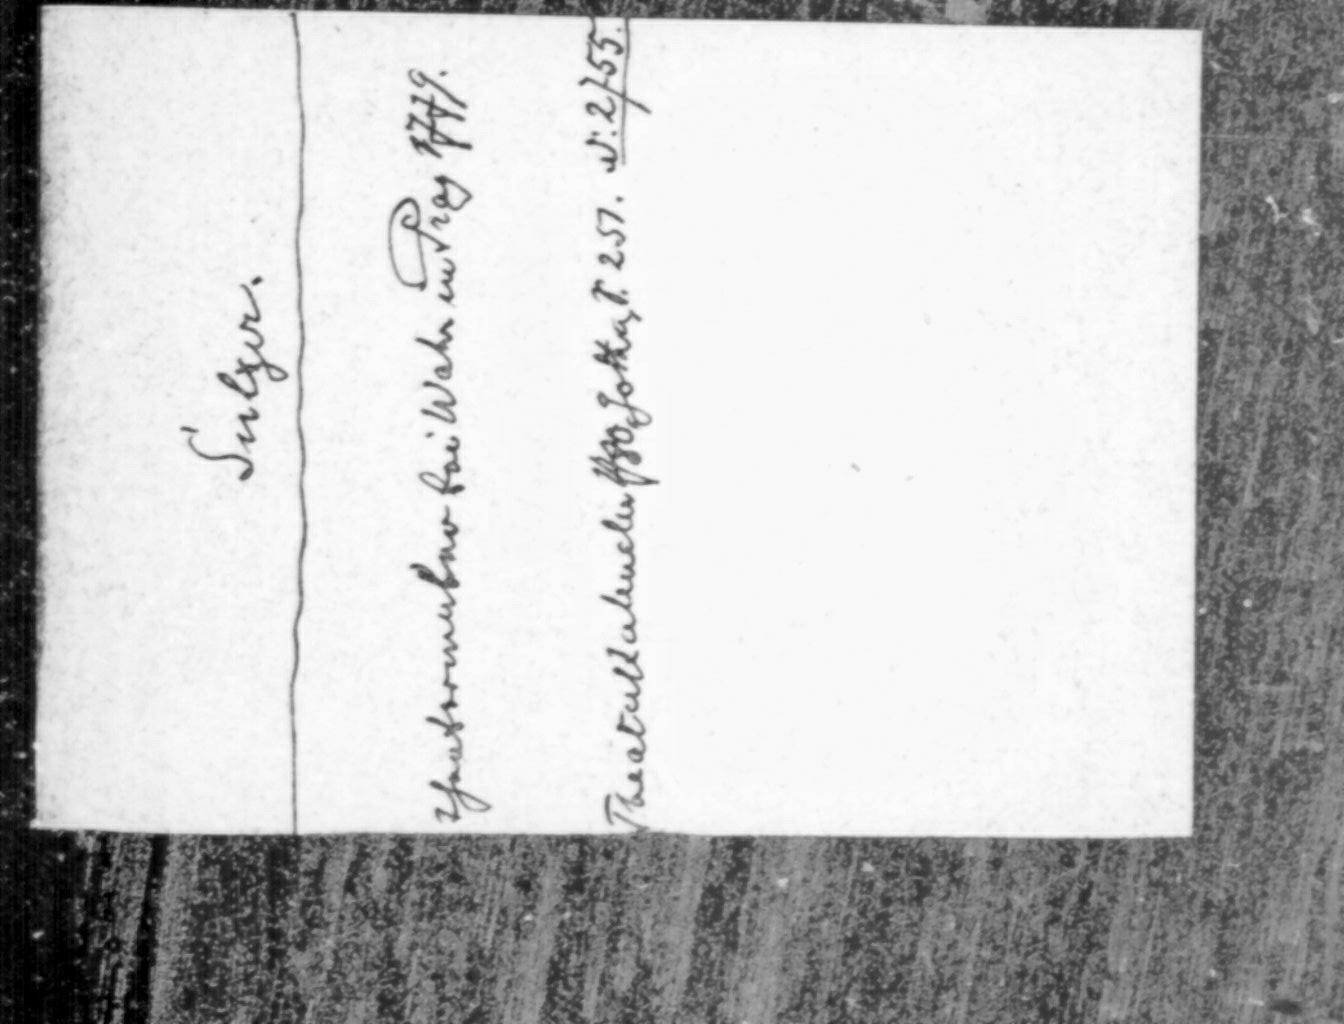 Sulzer.
Theaterunternehmer bei Wahr in Prag 1779.
Theaterkalender 1780, Gotha, S. 251. N: 2/55.